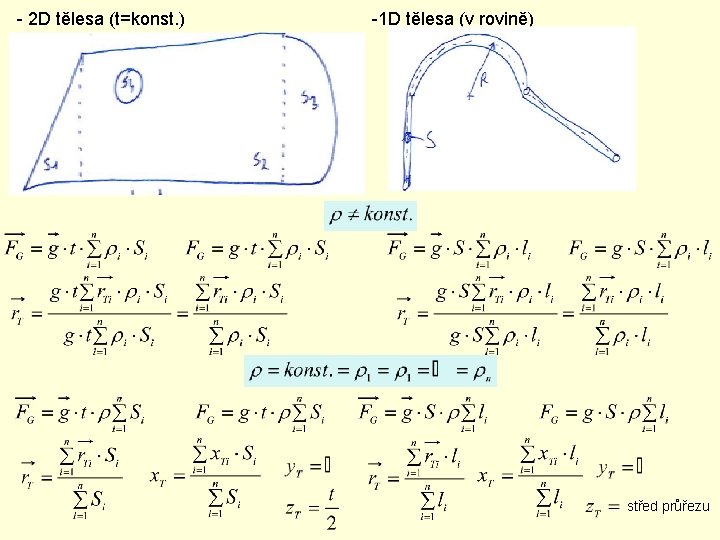 - 2D tělesa (t=konst.)
-1D tělesa (v rovině)
S1
S4
S2
S3
R
S
ρ ≠ konst.
\vec{F_G} = \vec{g}·t·\sum_{i=1}^{n} ρ_i·S_i    F_G = g·t·\sum_{i=1}^{n} ρ_i·S_i    \vec{F_G} = \vec{g}·S·\sum_{i=1}^{n} ρ_i·l_i    F_G = g·S·\sum_{i=1}^{n} ρ_i·l_i
\vec{r_T} = \frac{g·t\sum_{i=1}^{n} \vec{r_{Ti}}·ρ_i·S_i}{g·t\sum_{i=1}^{n} ρ_i·S_i} = \frac{\sum_{i=1}^{n} \vec{r_{Ti}}·ρ_i·S_i}{\sum_{i=1}^{n} ρ_i·S_i}    \vec{r_T} = \frac{g·S\sum_{i=1}^{n} \vec{r_{Ti}}·ρ_i·l_i}{g·S\sum_{i=1}^{n} ρ_i·l_i} = \frac{\sum_{i=1}^{n} \vec{r_{Ti}}·ρ_i·l_i}{\sum_{i=1}^{n} ρ_i·l_i}
ρ = konst. = ρ_1 = ρ_1 = ▯ = ρ_n
\vec{F_G} = \vec{g}·t·ρ\sum_{i=1}^{n} S_i    F_G = g·t·ρ\sum_{i=1}^{n} S_i    \vec{F_G} = \vec{g}·S·ρ\sum_{i=1}^{n} l_i    F_G = g·S·ρ\sum_{i=1}^{n} l_i
\vec{r_T} = \frac{\sum_{i=1}^{n} \vec{r_{Ti}}·S_i}{\sum_{i=1}^{n} S_i}    x_T = \frac{\sum_{i=1}^{n} x_{Ti}·S_i}{\sum_{i=1}^{n} S_i}    y_T = ▯    z_T = \frac{t}{2}    \vec{r_T} = \frac{\sum_{i=1}^{n} \vec{r_{Ti}}·l_i}{\sum_{i=1}^{n} l_i}    x_T = \frac{\sum_{i=1}^{n} x_{Ti}·l_i}{\sum_{i=1}^{n} l_i}    y_T = ▯    z_T = střed průřezu